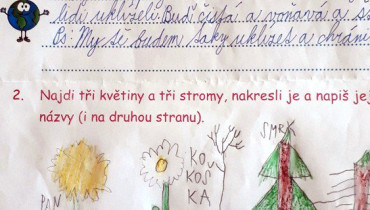 lidi uklízeli Buď čistá a voňavá a
Ps: My se budem taky uklízet a
2. Najdi tři květiny a tři stromy, nakresli je a napiš
názvy (i na druhou stranu).
SMRK
KOU
KOS
KA
PAN